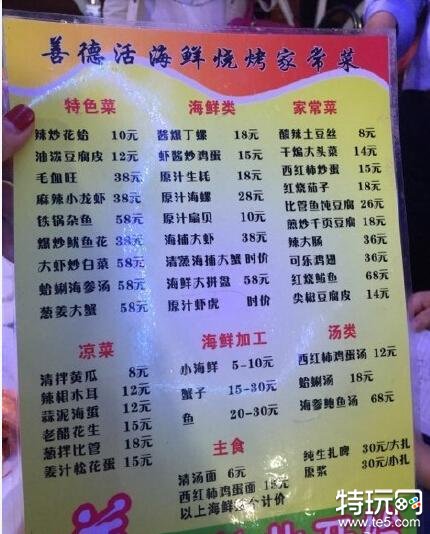 善德活海鲜烧烤家常菜
特色菜
辣炒花蛤 10元
油泼豆腐皮 12元
毛血旺 38元
麻辣小龙虾 38元
铁锅杂鱼 58元
爆炒鱿鱼花 38元
大虾炒白菜 58元
蛤蜊海参汤 58元
葱姜大蟹 58元
海鲜类
酱爆丁螺 18元
虾酱炒鸡蛋 15元
原汁生蚝 18元
原汁海螺 28元
原汁扇贝 10元
海捕大虾 38元
清蒸海捕大蟹 时价
海鲜大拼盘 58元
原汁虾虎 时价
家常菜
酸辣土豆丝 8元
干煸大头菜 14元
西红柿炒蛋 15元
红烧茄子 18元
比管鱼炖豆腐 26元
煎炒千页豆腐 18元
辣大肠 36元
可乐鸡翅 36元
红烧鲳鱼 68元
尖椒豆腐皮 14元
凉菜
清拌黄瓜 8元
辣根木耳 12元
蒜泥海蜇 12元
老醋花生 15元
葱拌比管 18元
姜汁松花蛋 15元
海鲜加工
小海鲜 5-10元
蟹子 15-30元
鱼 20-30元
主食
清汤面 6元
西红柿鸡蛋面
以上海鲜 个计价
汤类
西红柿鸡蛋汤 12元
蛤蜊汤 18元
海参鲍鱼汤 68元
纯生扎啤 30元/大扎
原浆 30元/小扎
特玩网
www.te5.com